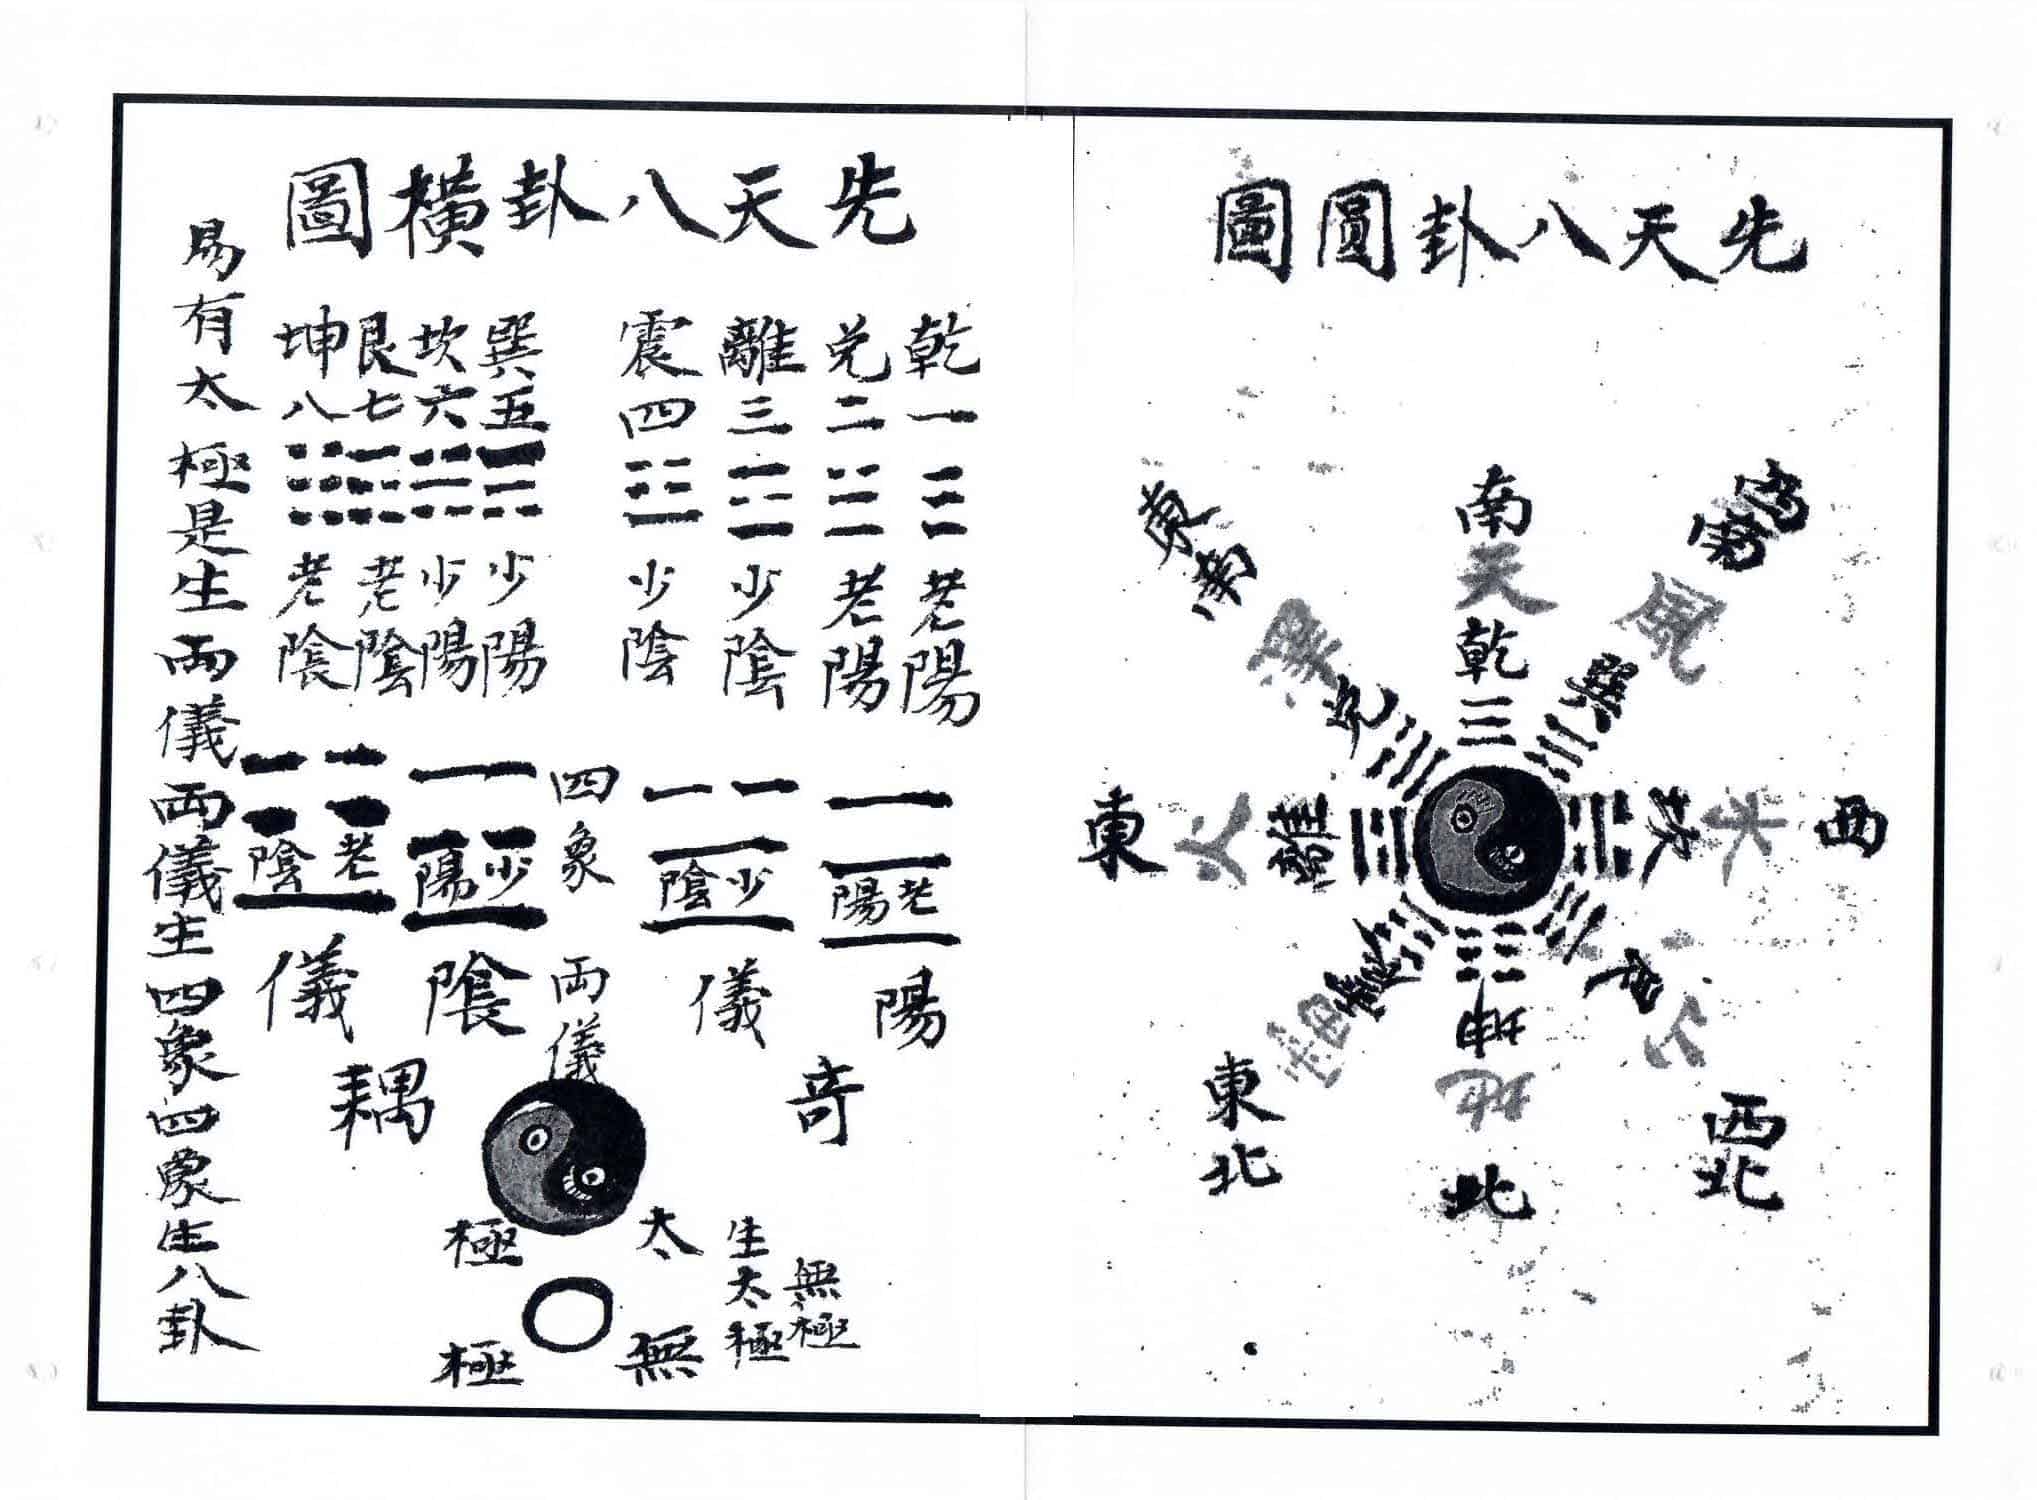 先天八卦圓圖
南
天
乾
西南
風
巽
西
水
坎
西北
山
艮
北
地
坤
東北
雷
震
東
火
離
東南
澤
兌
先天八卦橫圖
乾一
兌二
離三
震四
巽五
坎六
艮七
坤八
老陽
老陽
少陰
少陰
少陽
少陽
老陰
老陰
四象
老陽
少陰
少陽
老陰
兩儀
陽儀
陰儀
奇
耦
太極
無極
無極
生太極
易有太極是生兩儀兩儀生四象四象生八卦